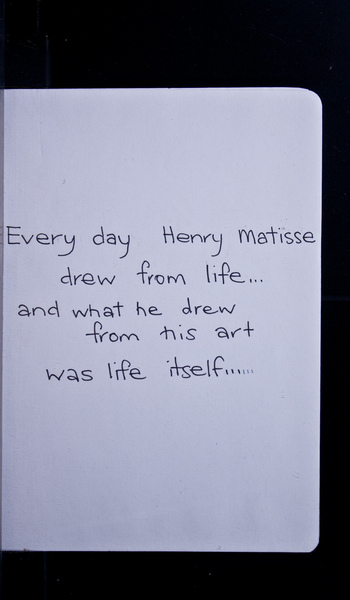 Every day Henry Matisse
drew from life...
and what he drew
from his art
was life itself......